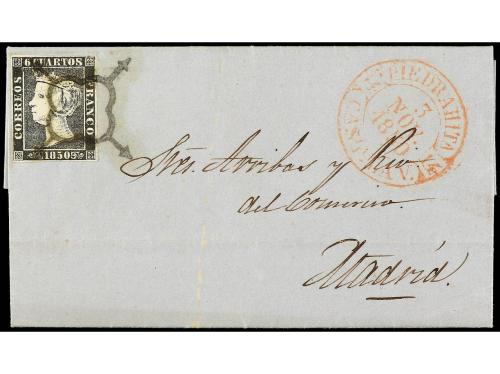 6 CUARTOS
CORREOS
FRANCO
1850
PIEDRAHITA
3
NOV
18
Sres. Arribas y
del Comercio.
Madrid.